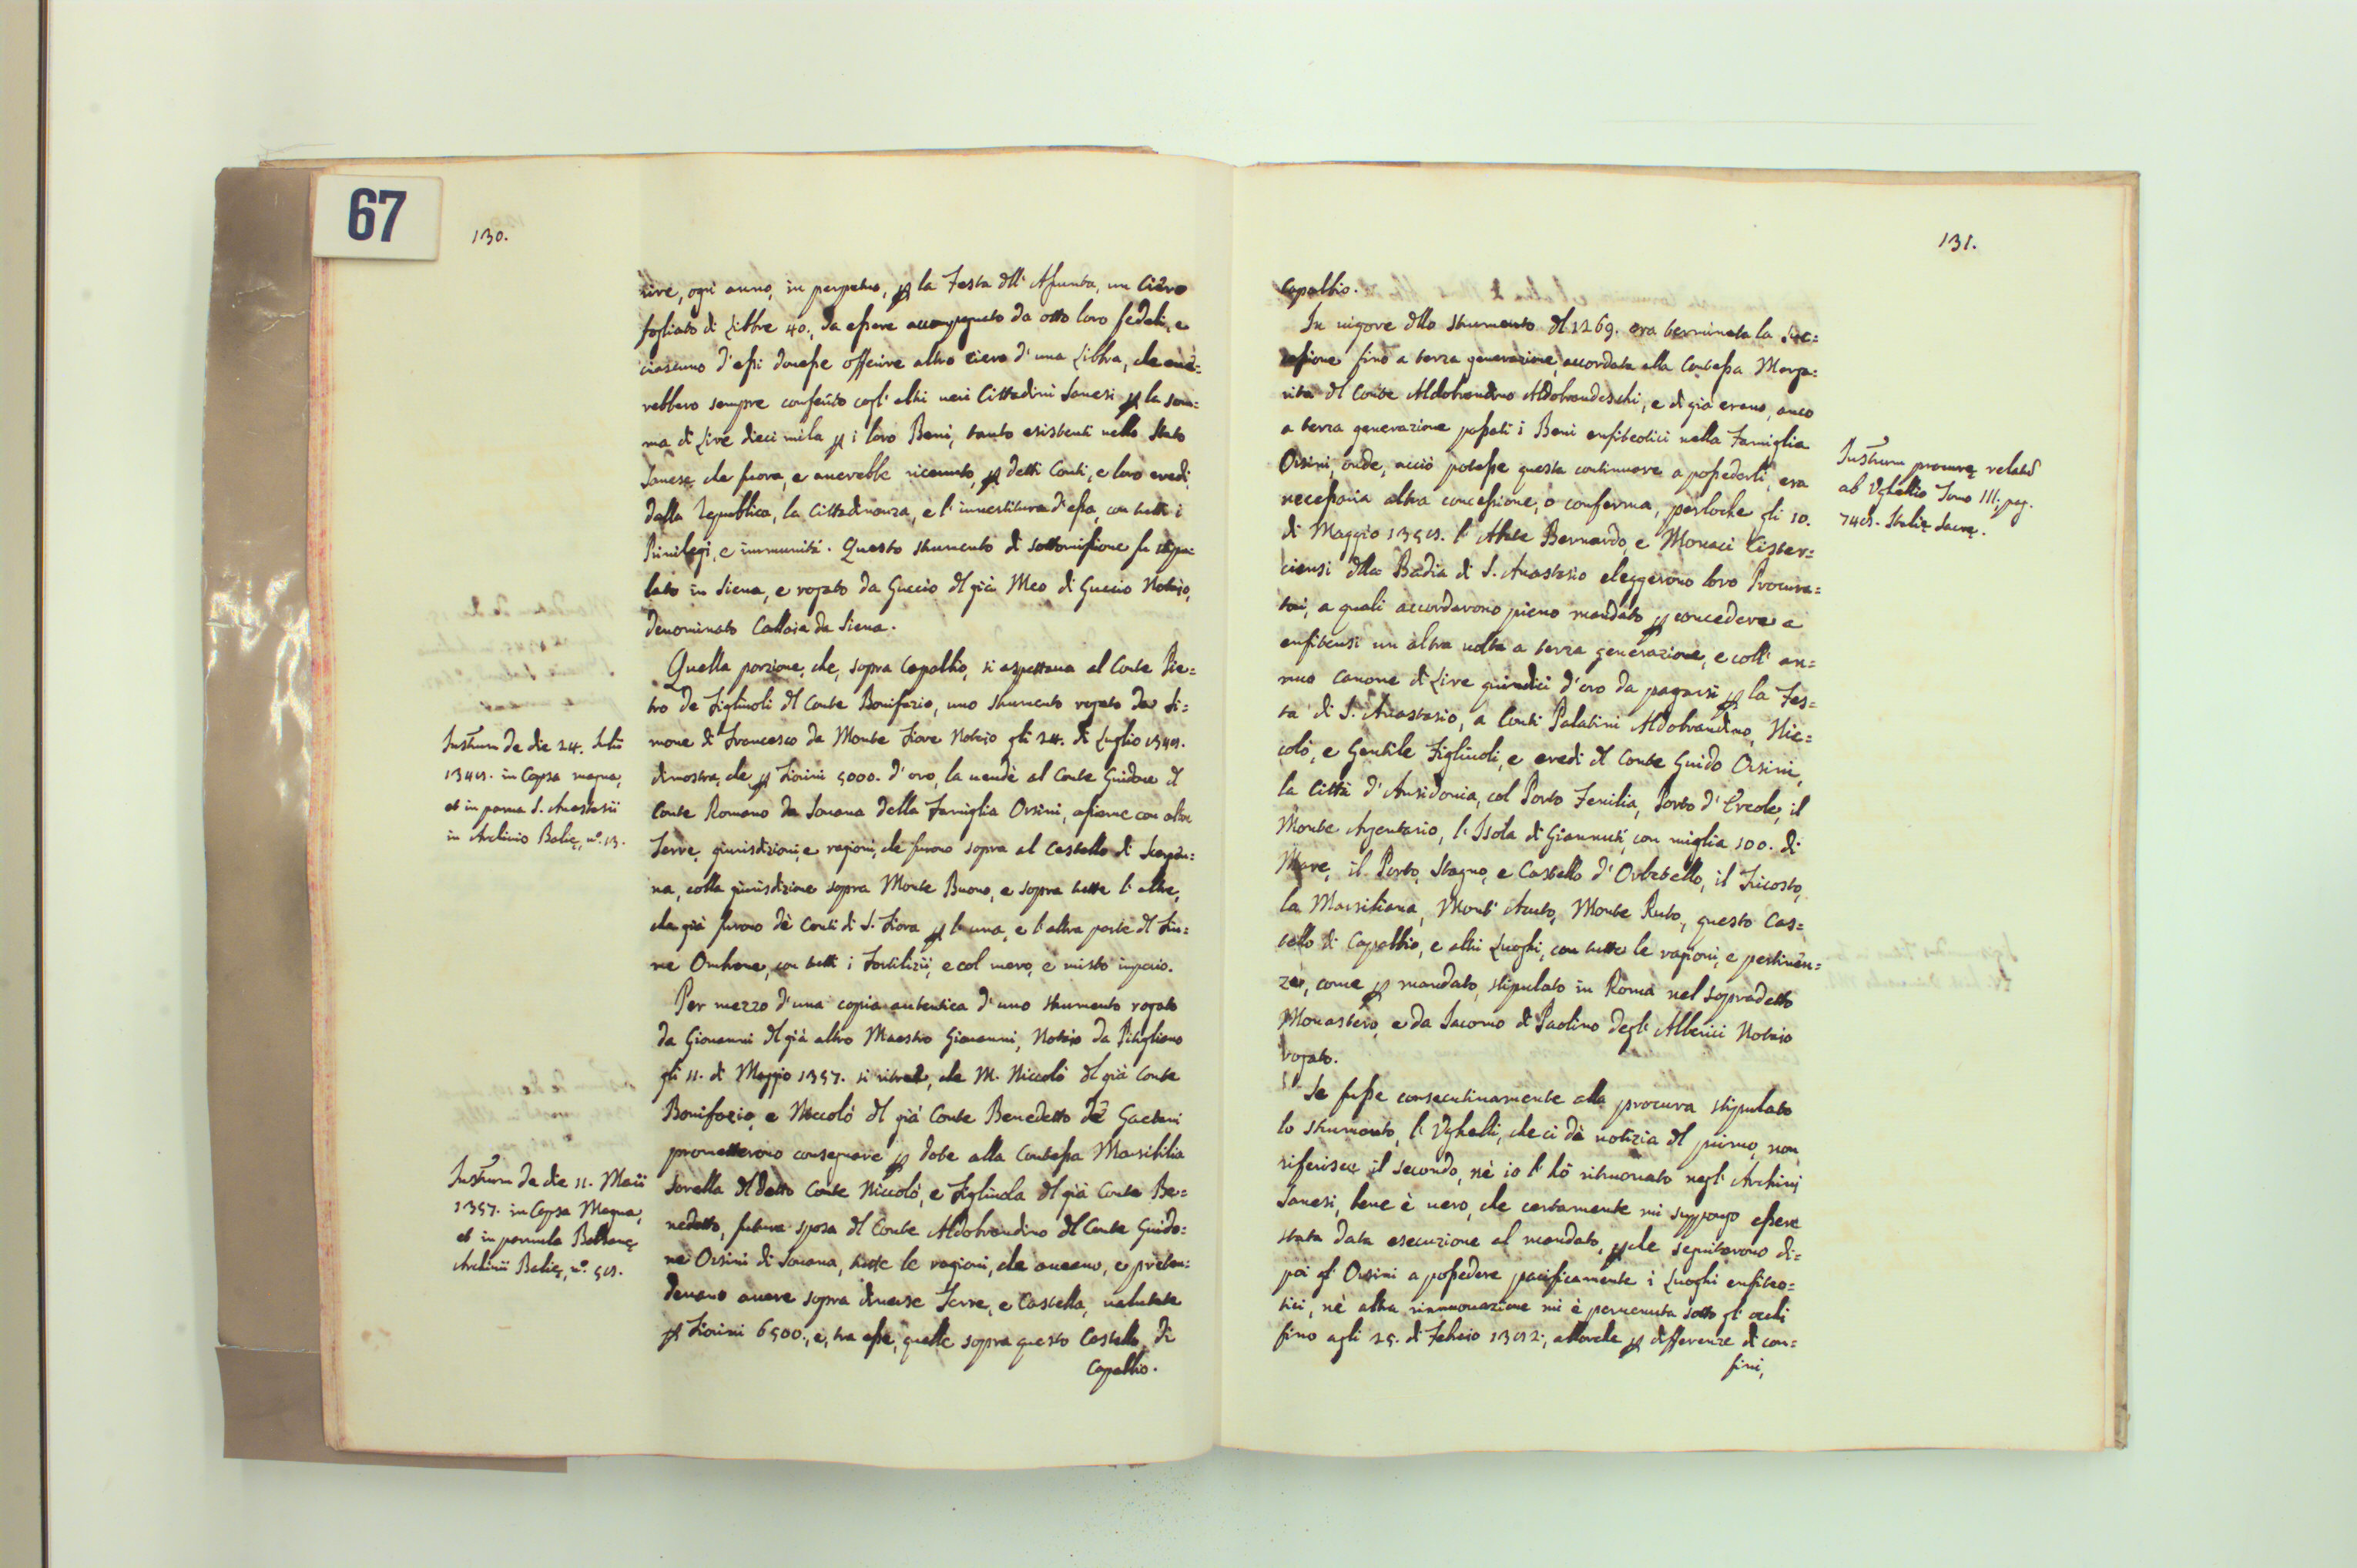 67
130.
rire, ogni anno, in perpetuo, ꝑ la Festa dll' Assunta, un Ciero
fogliato di Libbre 40., da essere accompagnato da otto loro fedeli, e
ciascuno d'essi dovesse offerire altro ciero d'una Libbra, che avē=
rebbero sempre confento cogl' altri veri Cittadini Sanesi ꝑ la som=
ma di Lire dieci mila ꝑ i loro Beni, tanto esistenti nello Stato
Sanese, che fuora, e averebbe ricevuto, ꝑ detti Conti, e loro eredi,
dalla Republica, la Cittadinanza, e l' investitura d'essa, con tutti i
Privilegi, e immunità. Questo strumento di sottomissione fu stipu=
lato in Siena, e rogato da Guccio dl già Meo di Guccio Notaio,
denominato Callaia da Siena.
Quella porzione, che, sopra Capalbio, si aspettava al Conte Pie=
tro de Figliuoli dl Conte Bonifazio, uno strumento rogato da Si=
mone di Francesco da Monte Fiore Notaio gli 24. di Luglio 1348.
dimostra, che ꝑ Fiorini 5000. d' oro, la vendè al Conte Guidone dl
Conte Romano da Soana della Famiglia Orsini, assieme con altre
Terre, giurisdizioni, e ragioni, che furono sopra al Castello di Scarpēn=
na, colla giurisdizione sopra Monte Buono, e sopra tutte l' altre,
che già furono dè Conti di S. Fiora ꝑ l' una, e l' altra parte dl Fiu=
me Ombrone, con tutti i Fortilizii, e col mero, e misto imperio.
Per mezzo d'una copia autentica d'uno strumento rogato
da Giovanni dl già altro Maestro Giovanni, Notaio da Pitigliano
gli 11. di Maggio 1357. si ritrae, che M. Niccolò dl già Conte
Bonifazio, e Niccolò dl già Conte Benedetto dè Gaetani
prometterono consegnare ꝑ dote alla Contessa Marsibilia
Sorella dl detto Conte Niccolò, e Figliuola dl già Conte Be=
nedetto, futura sposa dl Conte Aldobrandino dl Conte Guido=
ne Orsini di Soana, tutte le ragioni, che aveano, e preten=
devano avere sopra diverse Terre, e Castella, valutate
ꝑ Fiorini 6500., e, tra esse, quelle sopra questo Castello di
Capalbio.
Instrum̄ de die 24. Julii
1348. in Copsa magna,
et in parva S. Anastasii
in Archivio Balie, nº. 13.
Instrum̄ de die 11. Maii
1357. in Copsa Magna,
et in parvula Balzane
Archivii Balie, nº. 58.
131.
Capalbio.
In vigore dllo strumento dl 1269. era terminata la Suc=
cessione fino a terza generazione, accordata alla Contessa Marga=
rita dl Conte Aldobrandino Aldobrandeschi, e di già erano, anco
a terza generazione passati i Beni enfiteotici nella Famiglia
Orsini, onde, acciò potesse questa continuare a possederli, era
necessaria altra concessione, o conferma, perloche gli 10.
di Maggio 1358. l' Abate Bernardo, e Monaci Cister=
ciensi dlla Badia di S. Anastasio eleggerono loro Procura=
tori, a quali accordarono pieno mandato ꝑ concedere a
enfiteusi un altra volta a terza generazione, e coll' an=
nuo canone di Lire quindici d'oro da pagarsi ꝑ la Fes=
ta di S. Anastasio, a Conti Palatini Aldobrandino, Nic=
colò, e Gentile Figliuoli, e eredi dl Conte Guido Orsini,
la Città d'Ansidonia, col Porto Fenilia, Porto d' Ercole, il
Monte Argentario, l' Isola di Giannuti, con miglia 100. di
Mare, il Porto, Stagno, e Castello d' Orbetello, il Tricosto,
la Marsiliana, Mont' Auto, Monte Ruto, questo Cas=
tello di Capalbio, e altri Luoghi, con tutte le ragioni, e pertinēn=
ze, come ꝑ mandato, stipulato in Roma nel sopradetto
Monastero, e da Jacomo di Paolino degl' Alberici Notaio
rogato.
Se fusse consecutivamente alla procura stipulato
lo strumento, l' Vghelli, che ci dà notizia dl primo, non
riferisce il secondo, nè io l' hò ritrovato negl' Archivij
Sanesi, bene è vero, che certamente mi suppongo essere
stata data esecuzione al mandato, ꝑche seguitarono di=
poi gl' Orsini a possedere pacificamente i Luoghi enfiteo=
tici, nè altra rinnovazione mi è pervenuta sotto gl' occhi
fino agli 25. di Febraio 1382., allorche ꝑ differenze di con=
fini,
Instrum̄ procurę relatū
ab Vghellio Tomo III, pag.
748. Italię Sacrę.